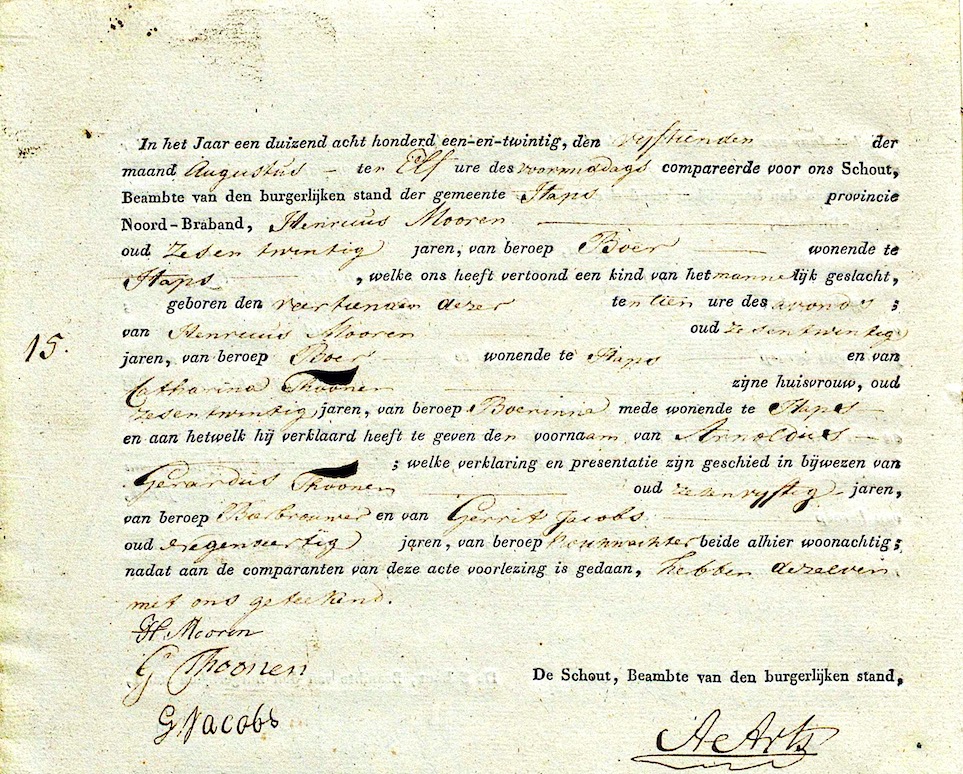 In het Jaar een duizend acht honderd een-en-twintig, den vijftienden der
maand Augustus ten Elf ure des voormiddags compareerde voor ons Schout,
Beambte van den burgerlijken stand der gemeente Haps provincie
Noord-Braband, Henricus Mooren
oud Zesentwintig jaren, van beroep Boer wonende te
Haps , welke ons heeft vertoond een kind van het mannelijk geslacht,
geboren den veertienden dezer ten tien ure des avonds ;
van Henricus Mooren oud zesentwintig
15.
jaren, van beroep Boer wonende te Haps en van
Catharina Thoonen zijne huisvrouw, oud
zesentwintig jaren, van beroep Boerinne mede wonende te Haps
en aan hetwelk hij verklaard heeft te geven den voornaam van Arnoldus
; welke verklaring en presentatie zijn geschied in bijwezen van
Gerardus Thoonen oud jaren,
van beroep Bierbrouwer en van Gerrit Jacobs
oud jaren, van beroep beide alhier woonachtig;
nadat aan de comparanten van deze acte voorlezing is gedaan, hebben dezelven
met ons geteekend.
H. Mooren
G Thoonen
De Schout, Beambte van den burgerlijken stand,
G Jacobs
A Arts